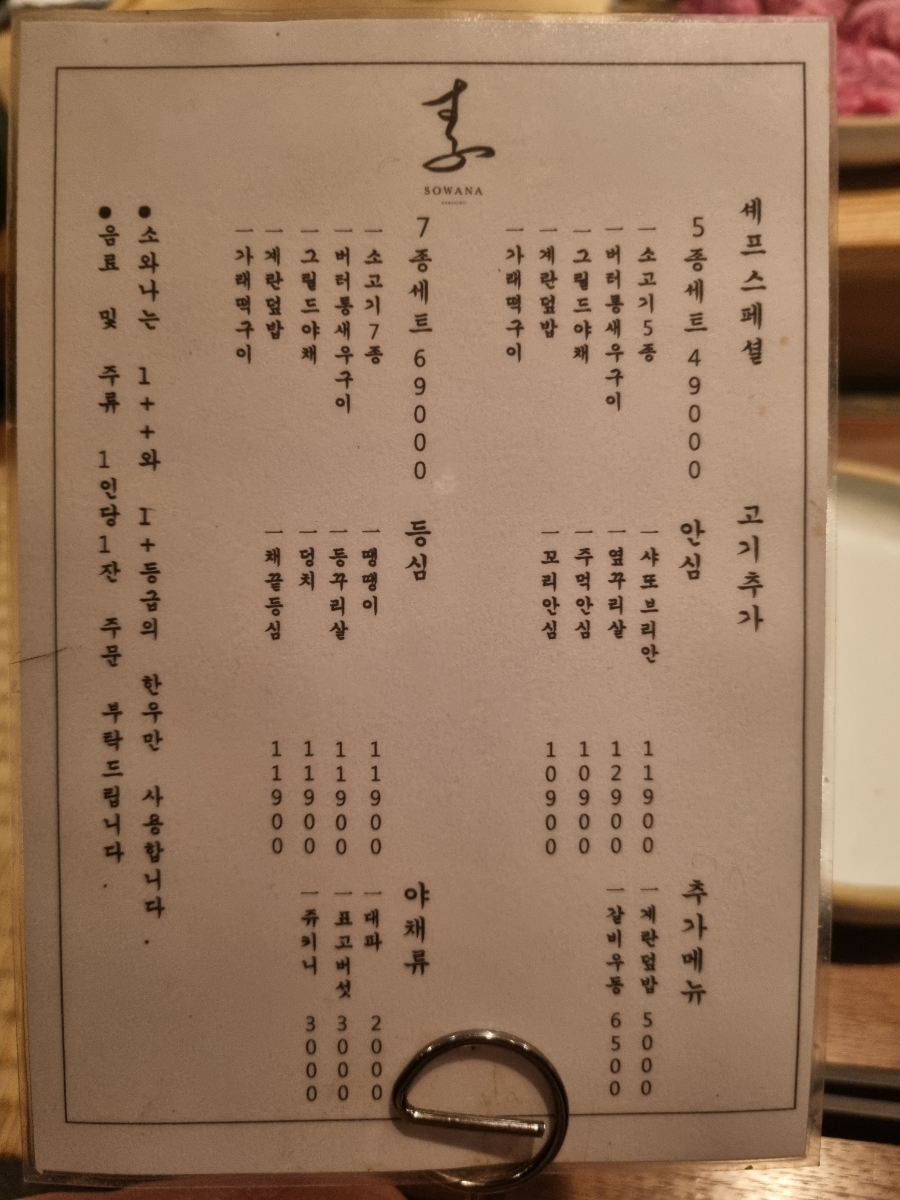 SOWANA
셰프스페셜
5종세트 49000
ㅡ소고기5종
ㅡ버터통새우구이
ㅡ그릴드야채
ㅡ계란덮밥
ㅡ가래떡구이
7종세트 69000
ㅡ소고기7종
ㅡ버터통새우구이
ㅡ그릴드야채
ㅡ계란덮밥
ㅡ가래떡구이
고기추가
안심
ㅡ샤또브리안 11900
ㅡ옆꾸리살 12900
ㅡ주먹안심 10900
ㅡ꼬리안심 10900
등심
ㅡ땡땡이 11900
ㅡ등꾸리살 11900
ㅡ덩치 11900
ㅡ채끝등심 11900
추가메뉴
ㅡ계란덮밥 5000
ㅡ갈비우동 6500
야채류
ㅡ대파 2000
ㅡ표고버섯 3000
ㅡ쥬키니 3000
●소와나는 1++와 1+등급의 한우만 사용합니다.
●음료 및 주류 1인당1잔 주문 부탁드립니다.